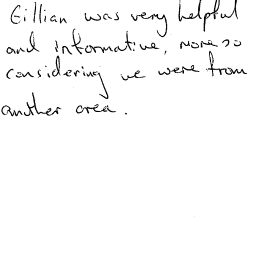 Gillian was very helpful
and informative, more so
considering we were from
another area.